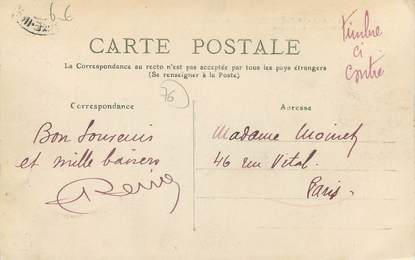 6€
timbre
ci
contre
CARTE POSTALE
La Correspondance au recto n'est pas acceptée par tous les pays étrangers
(Se renseigner à la Poste)
76
Correspondance
Adresse
Bon Souvenir
et mille baisers
Madame
46 rue Vital.
Paris.